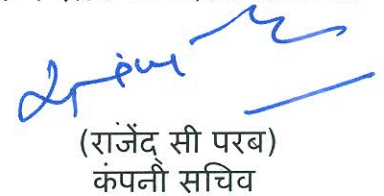 (राजेंद् सी परब)
कंपनी सचिव